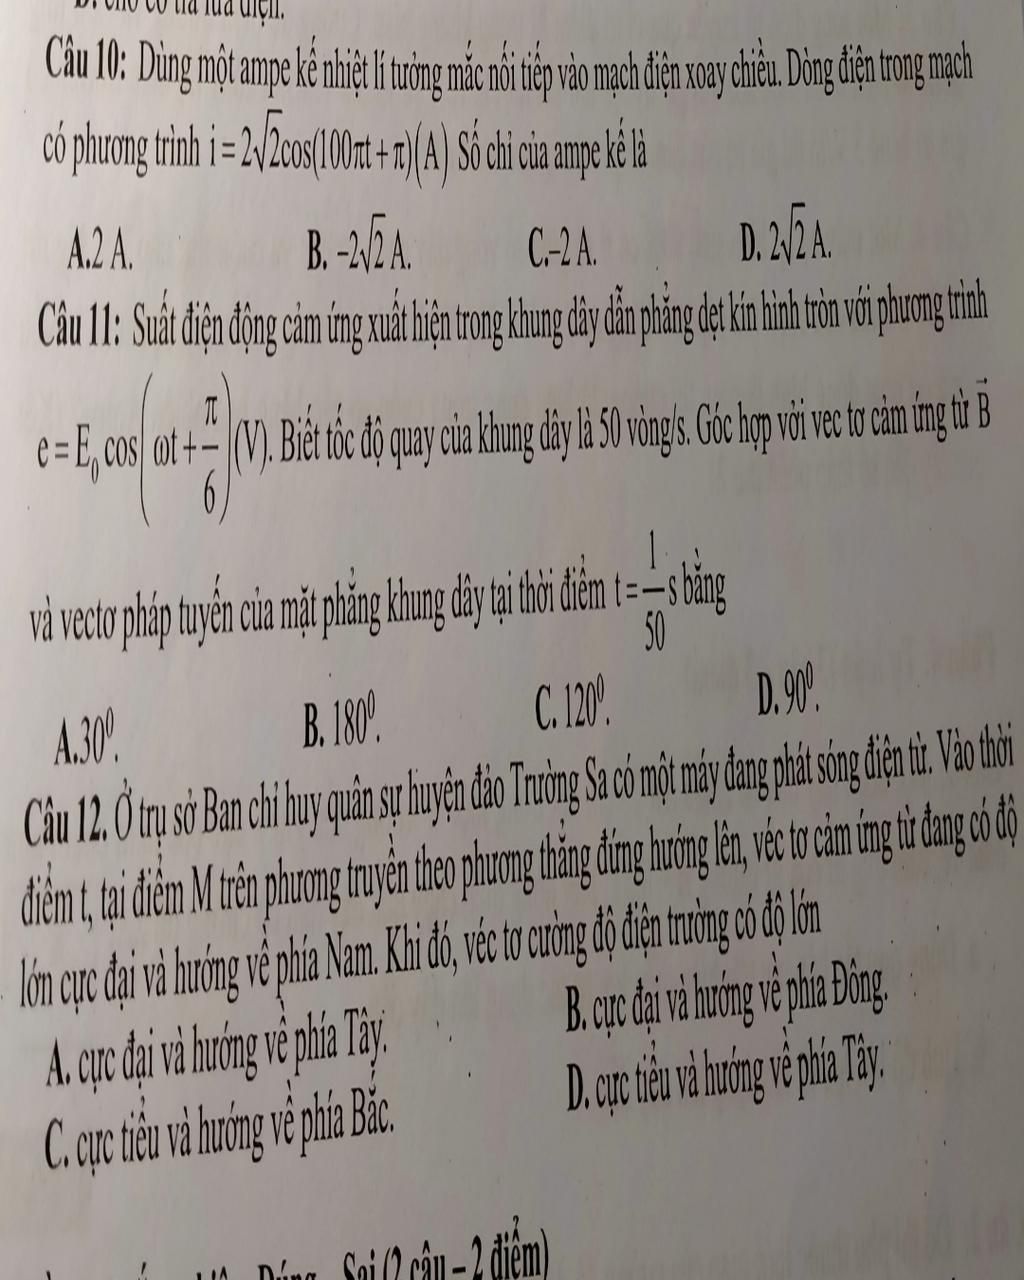 D. cho có tia lửa điện.
Câu 10: Dùng một ampe kế nhiệt lí tưởng mắc nối tiếp vào mạch điện xoay chiều. Dòng điện trong mạch
có phương trình i = 2√2cos(100πt + π)(A) Số chỉ của ampe kế là
A.2 A. B. -2√2 A. C.-2 A. D. 2√2 A.
Câu 11: Suất điện động cảm ứng xuất hiện trong khung dây dẫn phẳng dẹt kín hình tròn với phương trình
e = E₀ cos(ωt + π/6)(V). Biết tốc độ quay của khung dây là 50 vòng/s. Góc hợp vởi vec tơ cảm ứng từ B⃗
và vectơ pháp tuyến của mặt phẳng khung dây tại thời điểm t = 1/50 s bằng
A.30⁰. B. 180⁰. C. 120⁰. D. 90⁰.
Câu 12. Ở trụ sở Ban chỉ huy quân sự huyện đảo Trường Sa có một máy đang phát sóng điện từ. Vào thời
điểm t, tại điểm M trên phương truyền theo phương thẳng đứng hướng lên, véc tơ cảm ứng từ đang có độ
lớn cực đại và hướng về phía Nam. Khi đó, véc tơ cường độ điện trường có độ lớn
A. cực đại và hướng về phía Tây. B. cực đại và hướng về phía Đông.
C. cực tiểu và hướng về phía Bắc. D. cực tiểu và hướng về phía Tây.
Đúng Sai (2 câu – 2 điểm)